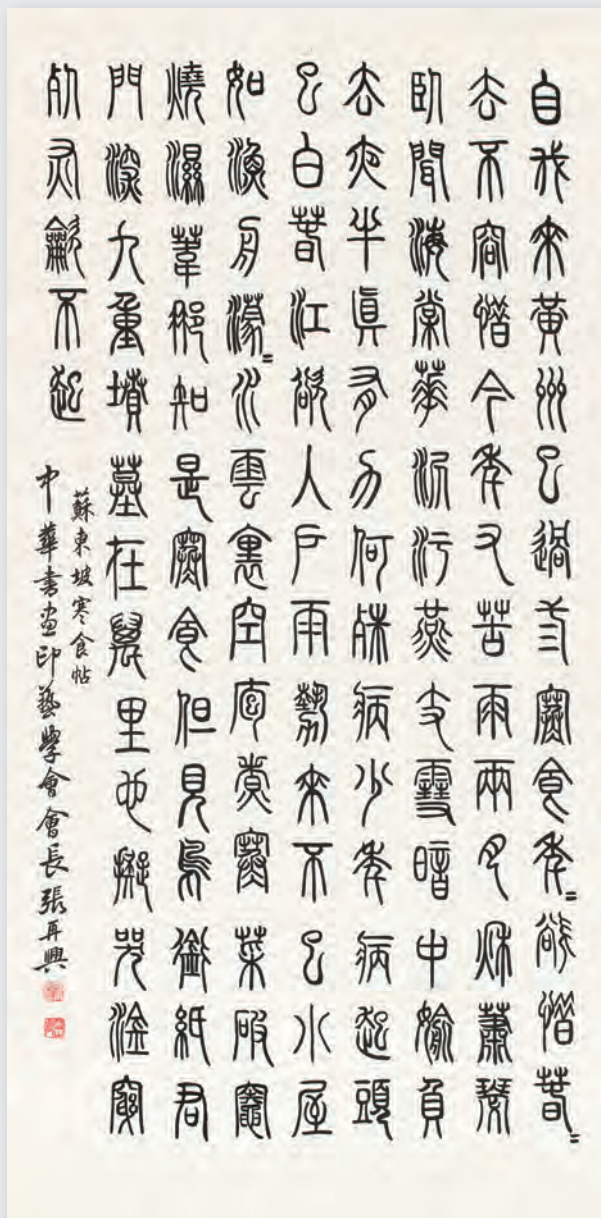 自我來黃州已過三寒食年〻欲惜春〻
去不容惜今年又苦雨兩月秋蕭瑟
臥聞海棠華泥污燕支雪暗中偷負
去夜半真有力何殊病少年病起頭
已白春江欲入戶雨勢來不已小屋
如漁舟濛〻水雲裏空庖煮寒菜破竈
燒濕葦那知是寒食但見烏銜紙君
門深九重墳墓在萬里也擬哭塗窮
死灰吹不起
蘇東坡寒食帖
中華書畫印藝學會會長張再興